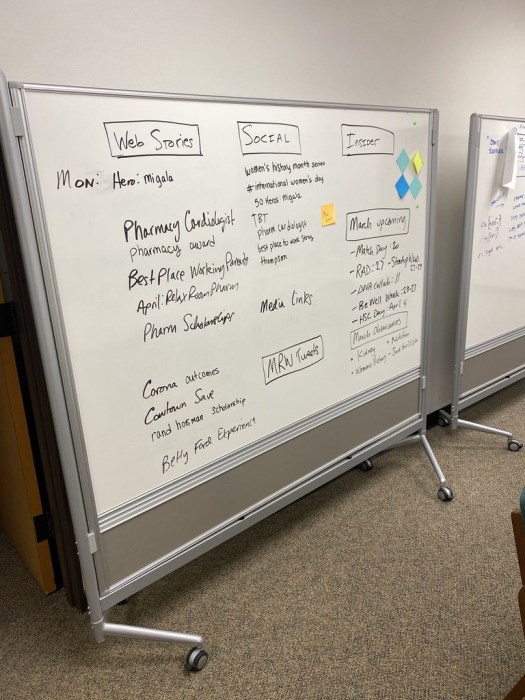 Web Stories
Mon: Hero: migala
Pharmacy Cardiologist
pharmacy award
Best Place Working Parents
April: Relax Room Pharm
Pharm Scholarships
Corona outcomes
Cowtown Save
rand horsman scholarship
Betty Ford Experience
Social
women's history month series
#international women's day
50 Heros: Migala
TBT
pharm cardiologist
best place to work
thompson
Media Links
MRW Tweets
Insider
March upcoming
- Match Day: 20
- RAD: 27
- DNA
- Be Well Week: 23-27
- HSC Day April
March Observances
• Kidney
• Nutrition
• Womens History